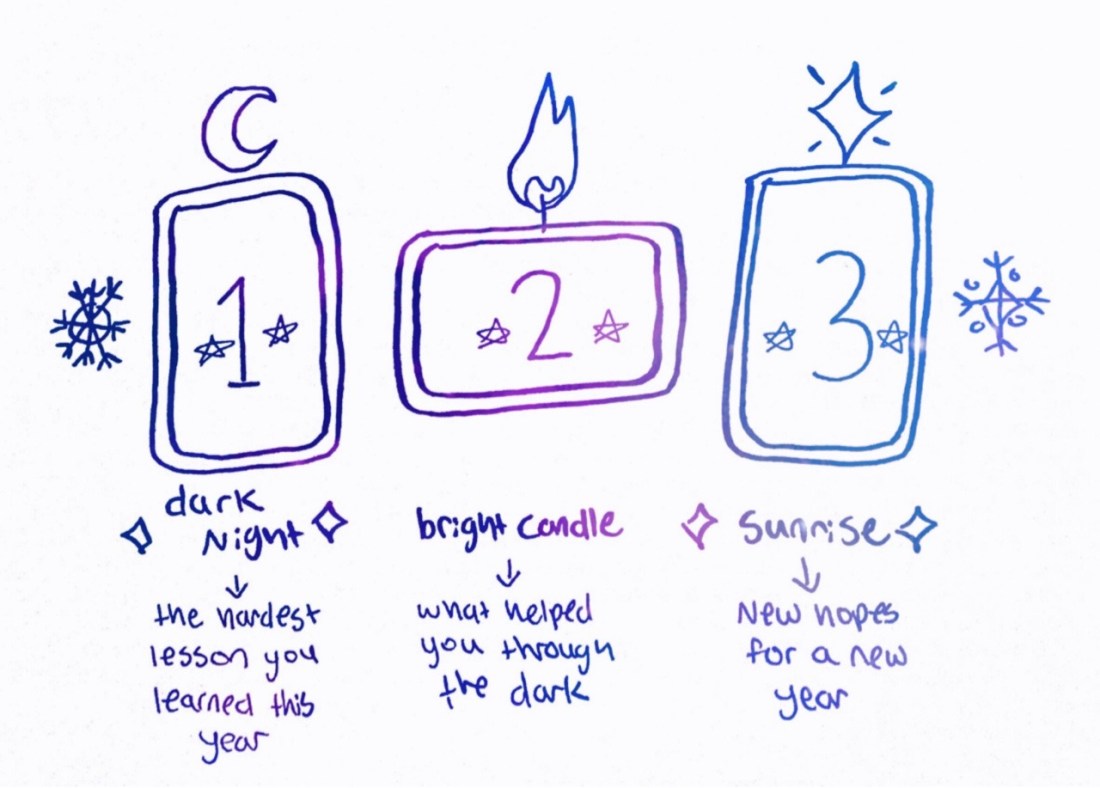 1
2
3
dark
Night
↓
the hardest
lesson you
learned this
year
bright candle
↓
what helped
you through
the dark
Sunrise
↓
New hopes
for a new
year